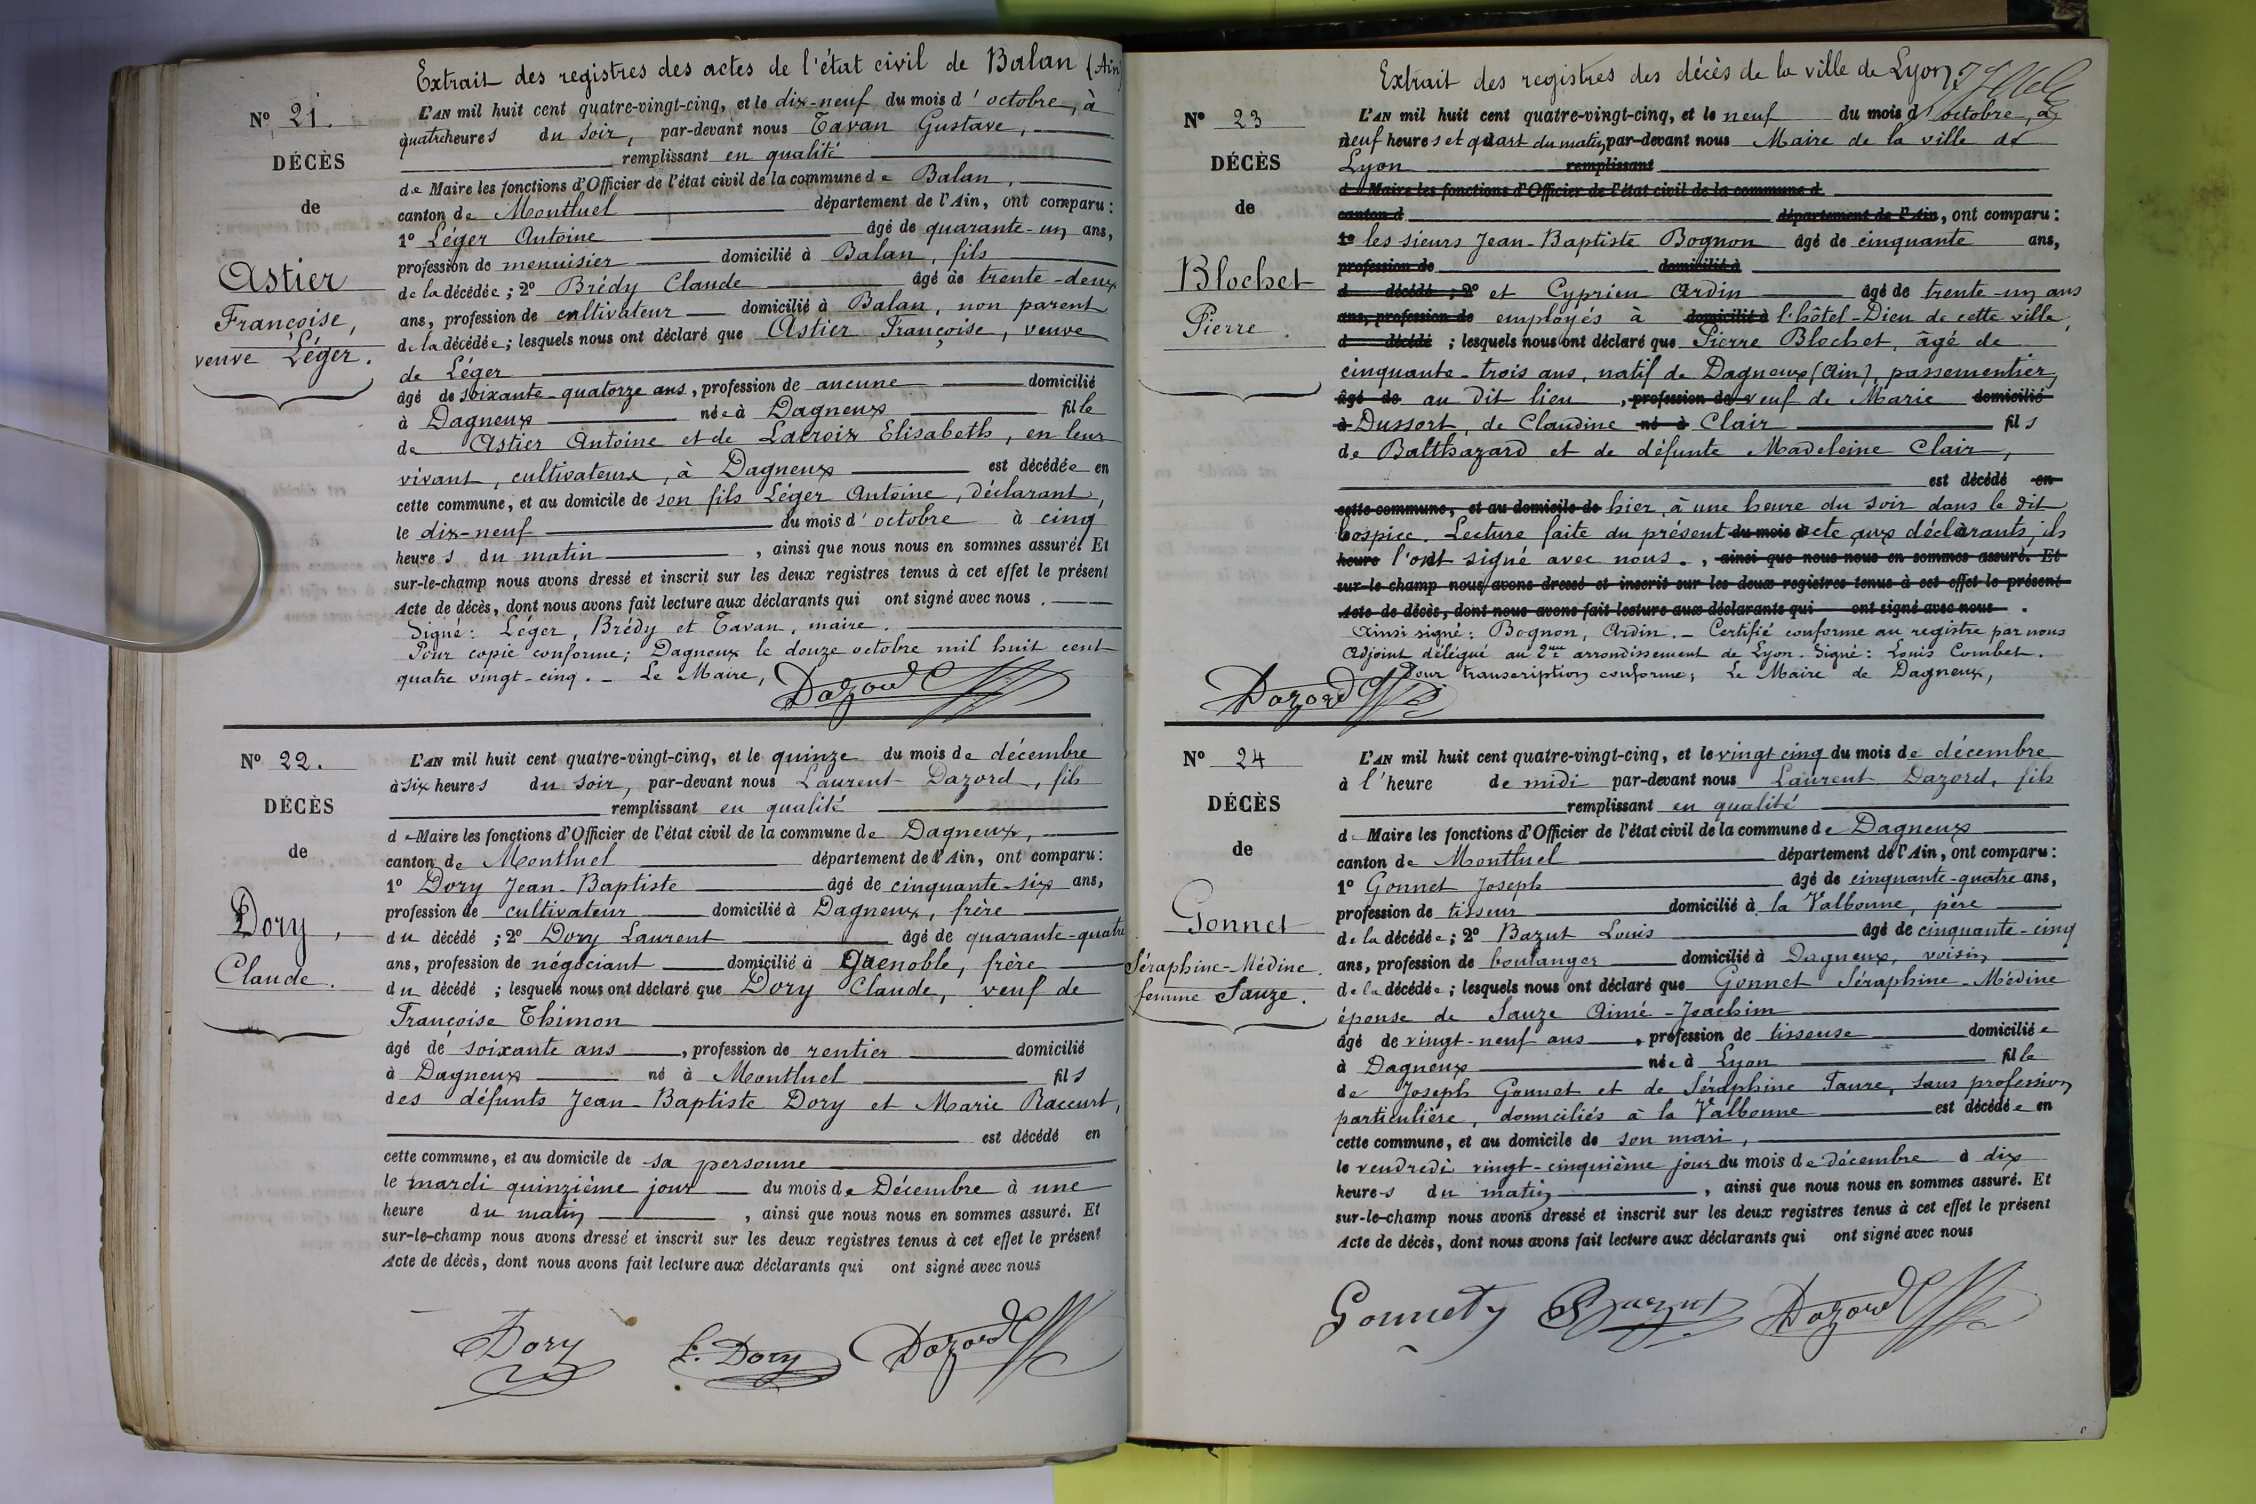 Extrait des registres des actes de l'état civil de Balan (Ain)
N° 21.
DÉCÈS
de
Astier
Françoise,
veuve Léger.
L'AN mil huit cent quatre-vingt-cinq, et le dix-neuf du mois d'octobre, à
quatre heures du soir, par-devant nous Tavan Gustave,
remplissant en qualité
de Maire les fonctions d'Officier de l'état civil de la commune de Balan,
canton de Montluel département de l'Ain, ont comparu :
1° Léger Antoine âgé de quarante-un ans,
profession de menuisier domicilié à Balan, fils
de la décédée ; 2° Brédy Claude âgé de trente-deux
ans, profession de cultivateur domicilié à Balan, non parent
de la décédée ; lesquels nous ont déclaré que Astier Françoise, veuve
de Léger
âgé de soixante-quatorze ans, profession de aucune domicilié
à Dagneux née à Dagneux fille
de Astier Antoine et de Lacroix Elisabeth, en leur
vivant, cultivateurs, à Dagneux est décédée en
cette commune, et au domicile de son fils Léger Antoine, déclarant,
le dix-neuf du mois d'octobre à cinq
heures du matin, ainsi que nous nous en sommes assuré. Et
sur-le-champ nous avons dressé et inscrit sur les deux registres tenus à cet effet le présent
Acte de décès, dont nous avons fait lecture aux déclarants qui ont signé avec nous.
Signé : Léger, Brédy et Tavan, maire.
Pour copie conforme ; Dagneux le douze octobre mil huit cent
quatre vingt-cinq. – Le Maire,
Dazord
N° 22.
DÉCÈS
de
Dory,
Claude.
L'AN mil huit cent quatre-vingt-cinq, et le quinze du mois de décembre
à six heures du soir, par-devant nous Laurent Dazord, fils
remplissant en qualité
de Maire les fonctions d'Officier de l'état civil de la commune de Dagneux,
canton de Montluel département de l'Ain, ont comparu :
1° Dory Jean-Baptiste âgé de cinquante-six ans,
profession de cultivateur domicilié à Dagneux, frère
du décédé ; 2° Dory Laurent âgé de quarante-quatre
ans, profession de négociant domicilié à Grenoble, frère
du décédé ; lesquels nous ont déclaré que Dory Claude, veuf de
Françoise Thimon
âgé de soixante ans, profession de rentier domicilié
à Dagneux né à Montluel fils
des défunts Jean-Baptiste Dory et Marie Raccurt,
est décédé en
cette commune, et au domicile de sa personne
le mardi quinzième jour du mois de Décembre à une
heure du matin, ainsi que nous nous en sommes assuré. Et
sur-le-champ nous avons dressé et inscrit sur les deux registres tenus à cet effet le présent
Acte de décès, dont nous avons fait lecture aux déclarants qui ont signé avec nous
Dory L. Dory Dazord
Extrait des registres des décès de la ville de Lyon
N° 23
DÉCÈS
de
Blochet
Pierre.
L'AN mil huit cent quatre-vingt-cinq, et le neuf du mois d'octobre, à
neuf heures et quart du matin, par-devant nous Maire de la ville de
Lyon remplissant
d Maire les fonctions d'Officier de l'état civil de la commune d
canton d département de l'Ain, ont comparu :
1° les sieurs Jean-Baptiste Bognon âgé de cinquante ans,
profession de domicilié à
d décédé ; 2° et Cyprien Ardin âgé de trente-un ans
ans, profession de employés à domicilié à l'hôtel-Dieu de cette ville,
d décédé ; lesquels nous ont déclaré que Pierre Blochet, âgé de
cinquante-trois ans, natif de Dagneux (Ain), passementier
âgé de au dit lieu, profession de veuf de Marie domicilié
à Dussort, de Claudine né à Clair fils
de Balthazard et de défunte Madeleine Clair,
est décédé en
cette commune, et au domicile de hier, à une heure du soir dans le dit
hospice. Lecture faite du présent du mois d acte aux déclarants, ils
heure l'ont signé avec nous., ainsi que nous nous en sommes assuré. Et
sur-le-champ nous avons dressé et inscrit sur les deux registres tenus à cet effet le présent
Acte de décès, dont nous avons fait lecture aux déclarants qui ont signé avec nous.
Ainsi signé : Bognon, Ardin. – Certifié conforme au registre par nous
Adjoint délégué au 2me arrondissement de Lyon. Signé : Louis Combet.
Pour transcription conforme, Le Maire de Dagneux,
Dazord
N° 24
DÉCÈS
de
Gonnet
Séraphine-Médine.
femme Sauze.
L'AN mil huit cent quatre-vingt-cinq, et le vingt cinq du mois de décembre
à l'heure de midi par-devant nous Laurent Dazord, fils
remplissant en qualité
de Maire les fonctions d'Officier de l'état civil de la commune de Dagneux
canton de Montluel département de l'Ain, ont comparu :
1° Gonnet Joseph âgé de cinquante-quatre ans,
profession de tisseur domicilié à la Valbonne, père
de la décédée ; 2° Bazut Louis âgé de cinquante-cinq
ans, profession de boulanger domicilié à Dagneux, voisin
de la décédée ; lesquels nous ont déclaré que Gonnet Séraphine-Médine
épouse de Sauze Aimé-Joachim
âgé de vingt-neuf ans, profession de tisseuse domiciliée
à Dagneux née à Lyon fille
de Joseph Gonnet et de Séraphine Faure, sans profession
particulière, domiciliés à la Valbonne est décédée en
cette commune, et au domicile de son mari,
le vendredi vingt-cinquième jour du mois de décembre à dix
heures du matin, ainsi que nous nous en sommes assuré. Et
sur-le-champ nous avons dressé et inscrit sur les deux registres tenus à cet effet le présent
Acte de décès, dont nous avons fait lecture aux déclarants qui ont signé avec nous
Gonnet Bazut Dazord